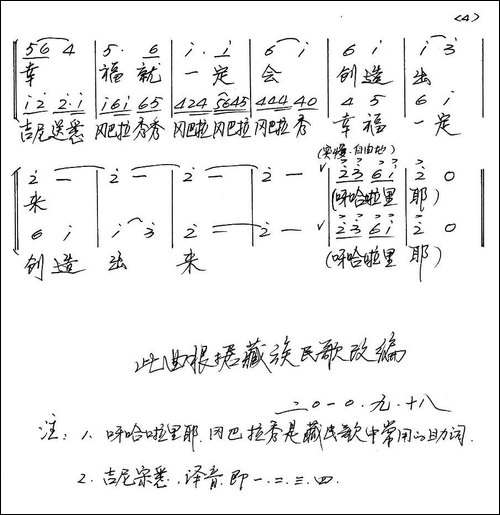 <4>
5 6 4 | 5 · 6 | i · i | 6 i | 6 i | i 3
幸 福 就 一 定 会 创 造 出
i 2 2 · i | i 6 i 6 5 | 4 2 4 5 6 4 5 | 4 4 4 4 0 | 4 5 | 6 i
吉尼送悉 冈巴拉秀秀 冈巴拉冈巴拉 冈巴拉秀 幸福 一定
(突慢·自由地)
2 — | 2 — | 2 — | 2 — ∨ 2 3 6 i | 2 0
来 (呀哈啦里 耶)
6 i | i 3 | 2 — | 2 — ∨ 2 3 6 i | 2 0
创造 出 来 (呀哈啦里 耶)
此曲根据藏族民歌改编
二〇一〇.九.十八
注：1、呀哈啦里耶、冈巴拉秀是藏民歌中常用的助词.
2. 吉尼宗悉、译音.即一.二.三.四.